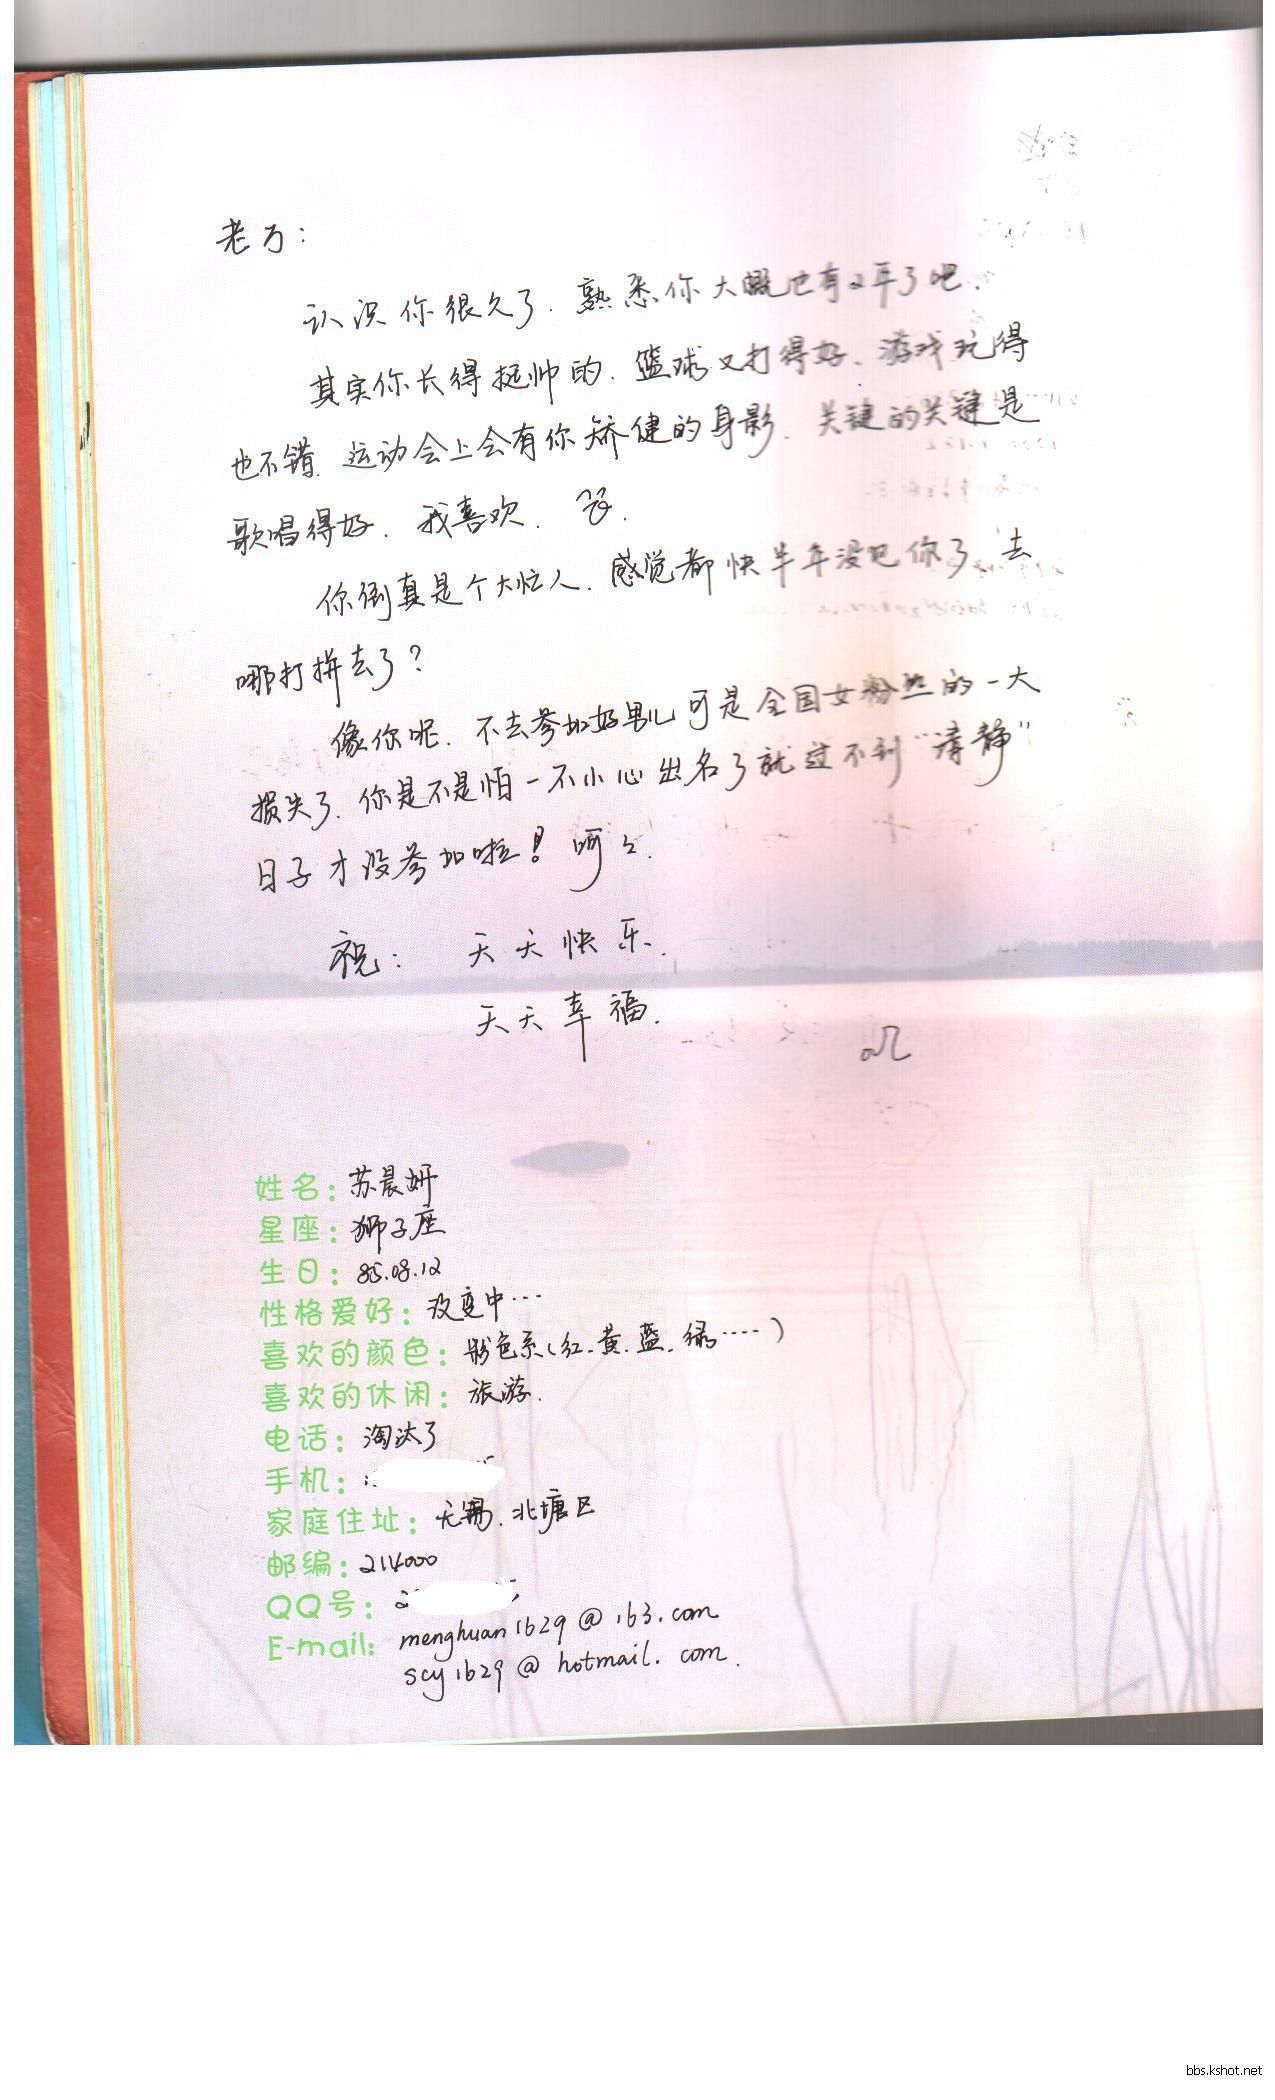 老万：
认识你很久了.熟悉你大概也有2年了吧.
其实你长得挺帅的.篮球又打得好.游戏玩得
也不错.运动会上会有你矫健的身影.关键的关键是
歌唱得好.我喜欢.
你倒真是个大忙人.感觉都快半年没见你了.去
哪打拼去了？
像你呢.不去参加好男儿可是全国女粉丝的一大
损失了.你是不是怕一不小心出名了就过不到“清静”
日子才没参加啦！呵々.
祝：天天快乐.
天天幸福.
姓名：苏晨妍
星座：狮子座
生日：85.08.12
性格爱好：改变中…
喜欢的颜色：彩色系(红.黄.蓝.绿……)
喜欢的休闲：旅游.
电话：淘汰了
手机：
家庭住址：无锡.北塘区
邮编：214000
QQ号：
E-mail：menghuan1629@163.com
scy1629@hotmail.com.
bbs.kshot.net